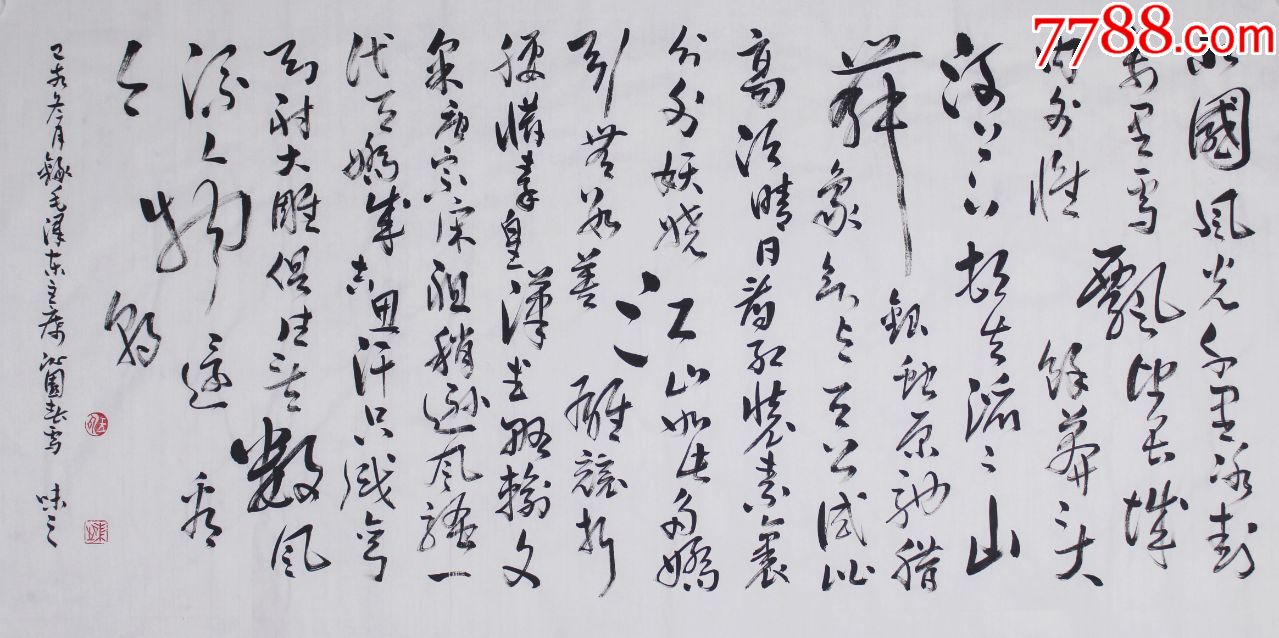 7788.com
北國風光千里冰封
萬里雪飄望長城
內外惟餘莽〻大
河上下頓失滔〻山
舞銀蛇原馳臘
象欲與天公試比
高須晴日看紅裝素裹
分外妖嬈江山如此多嬌
引無數英雄競折
腰惜秦皇漢武略輸文
采唐宗宋祖稍遜風騷一
代天驕成吉思汗只識彎
弓射大雕俱往矣數風
流人物還看
今朝
己亥冬月錄毛澤東主席沁園春雪 味〻